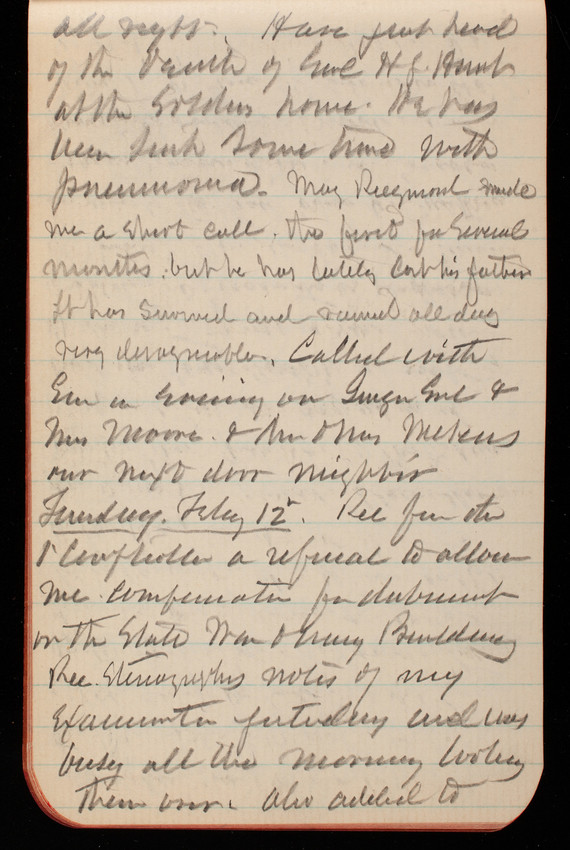 all right. Have just heard
of the Death of Genl H J. Hunt
at the Soldiers home. He has
been sick some time with
pneumonia. Maj Raymond made
me a short call. the first for several
months. but he has lately lost his father
It has snowed and rained all day
very disagreeable. Called with
Em in evening on Surgn Genl &
Mrs Moore. & Mr & Mrs
our next door neighbor
Tuesday. Feby 12". Rec from the
1 Comptroller a refusal to allow
me compensation for disbursement
on the State War & Navy Building
Rec. Stenographers notes of my
Examination yesterday and was
busy all the morning looking
them over. also added to